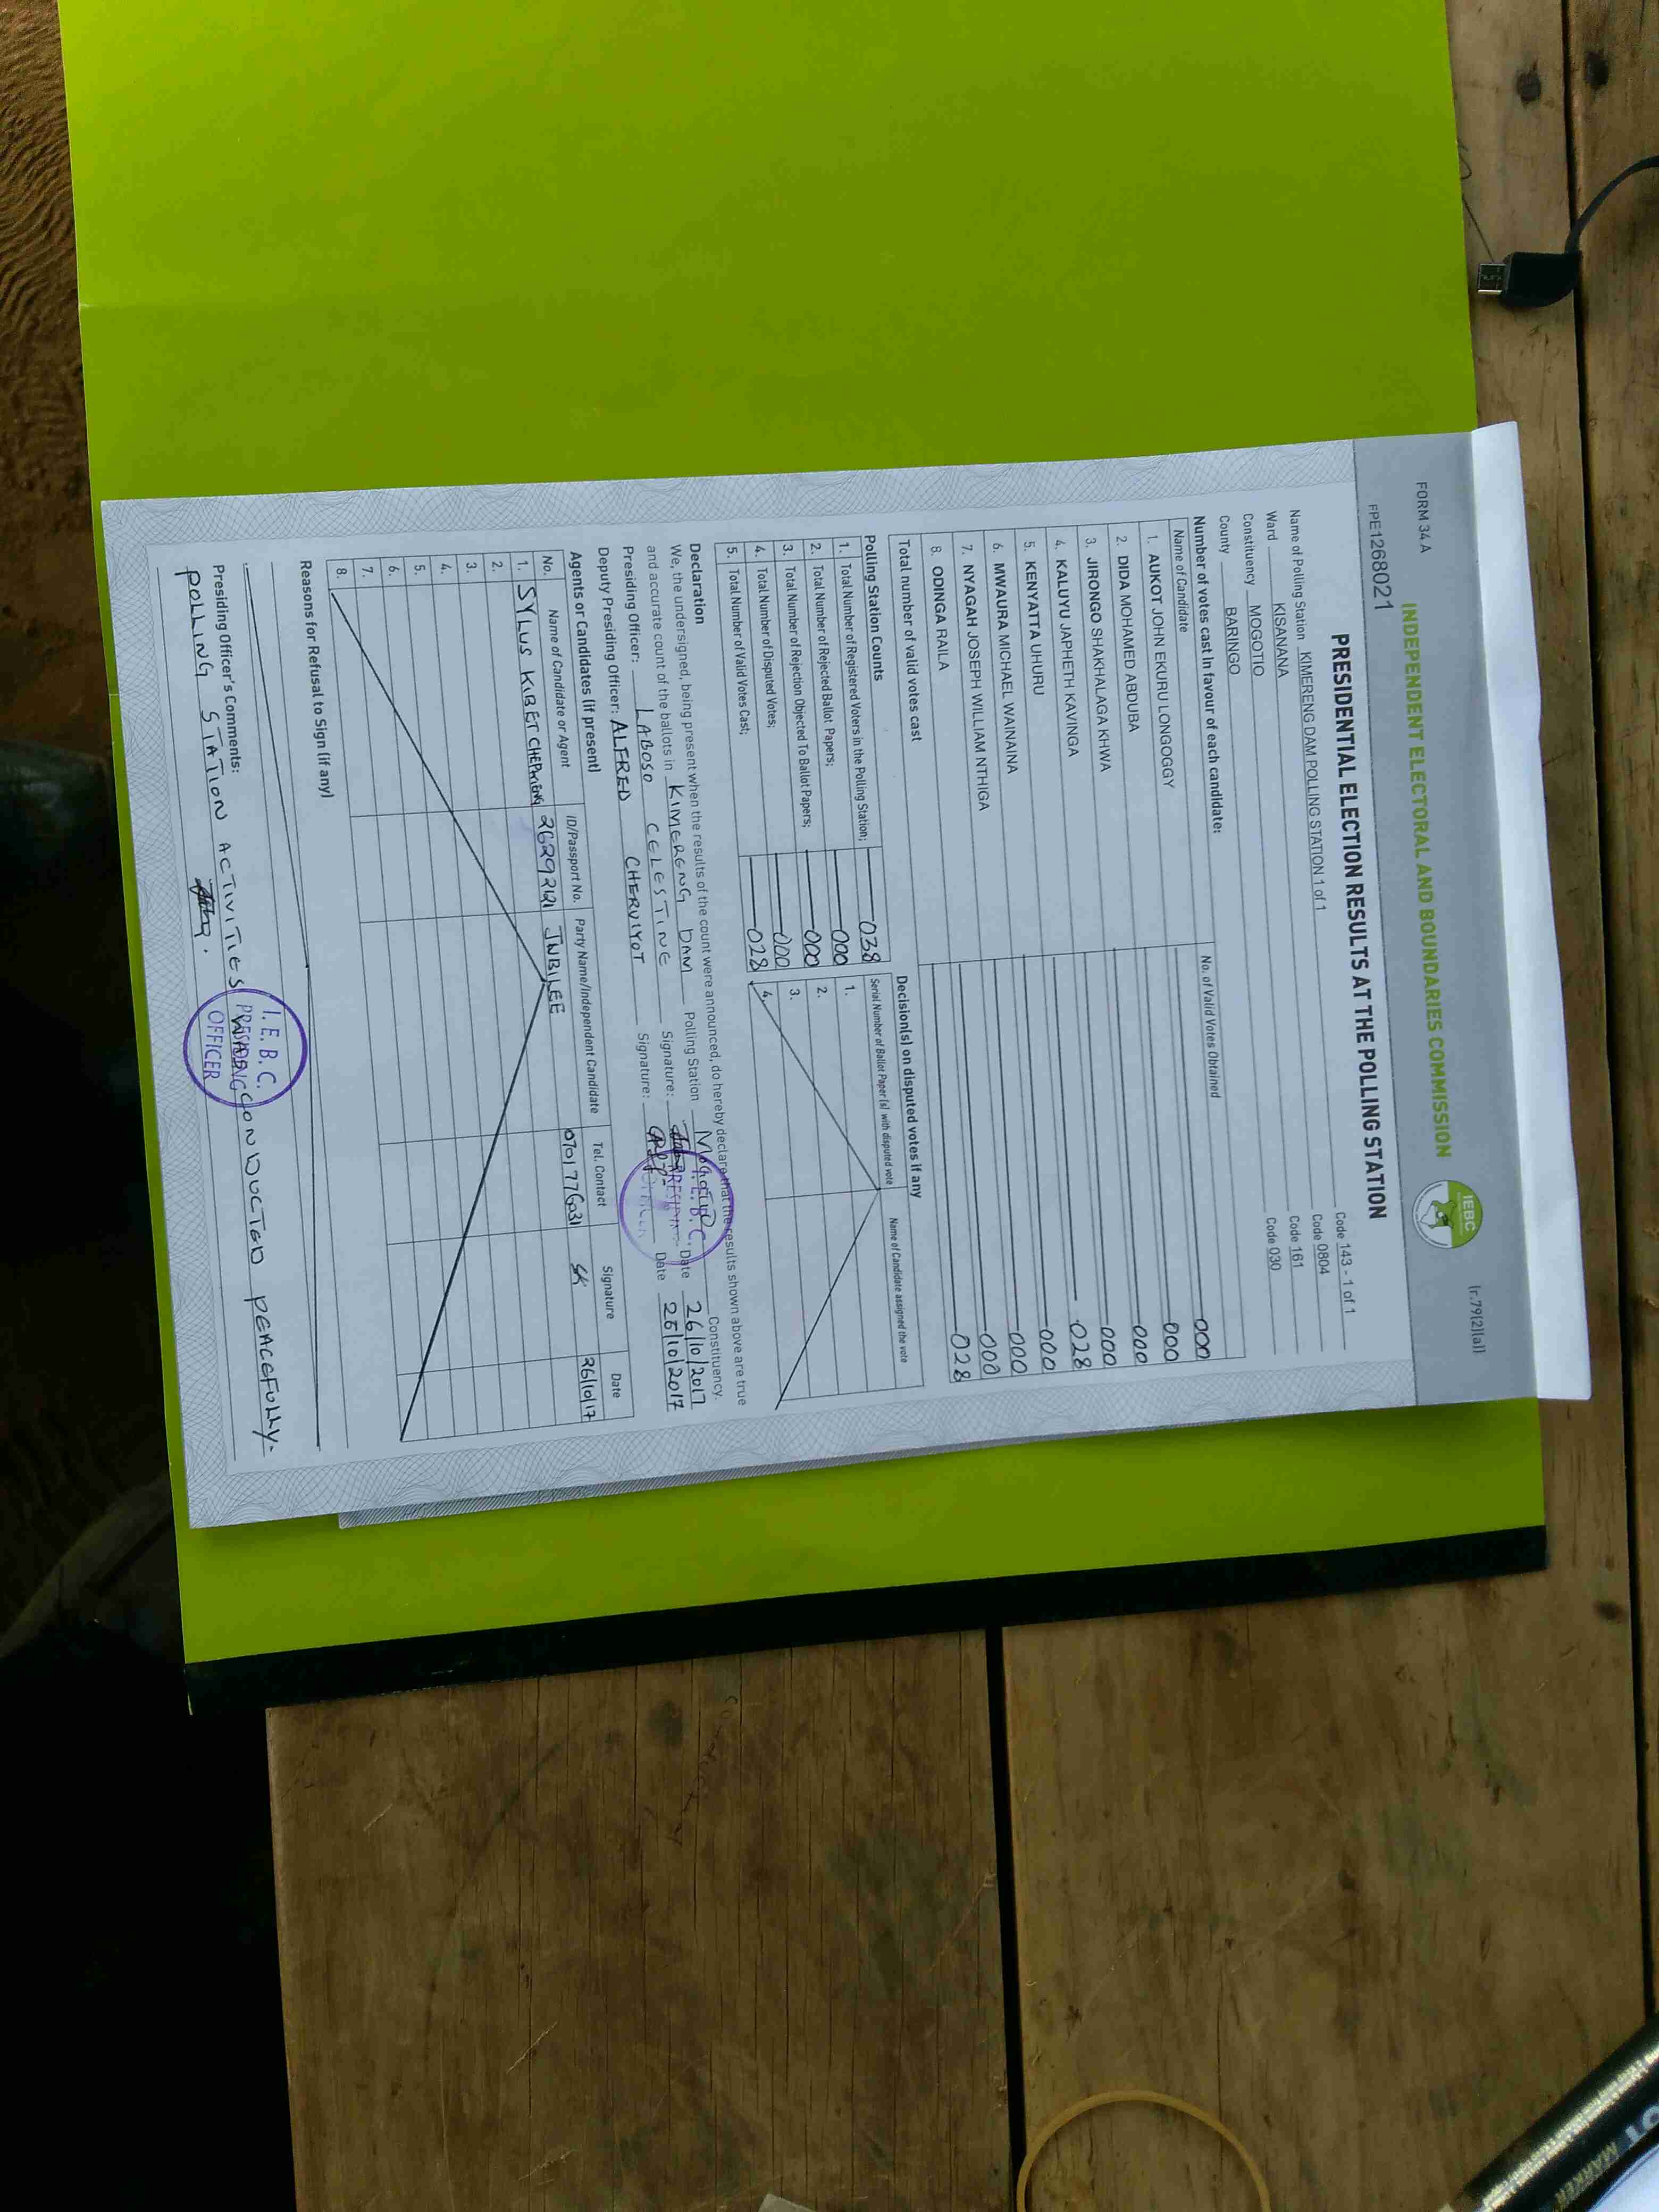 FORM 34 A
(r.79(2)(a))
INDEPENDENT ELECTORAL AND BOUNDARIES COMMISSION
IEBC
FPE1268021
PRESIDENTIAL ELECTION RESULTS AT THE POLLING STATION
Name of Polling Station KIMERENG DAM POLLING STATION 1 of 1 Code 143 - 1 of 1
Ward KISANANA Code 0804
Constituency MOGOTIO Code 161
County BARINGO Code 030
Number of votes cast in favour of each candidate:
Name of Candidate No. of Valid Votes Obtained
1. AUKOT JOHN EKURU LONGOGGY 000
2. DIDA MOHAMED ABDUBA 000
3. JIRONGO SHAKHALAGA KHWA 000
4. KALUYU JAPHETH KAVINGA 000
5. KENYATTA UHURU 028
6. MWAURA MICHAEL WAINAINA 000
7. NYAGAH JOSEPH WILLIAM NTHIGA 000
8. ODINGA RAILA 000
Total number of valid votes cast 028
Polling Station Counts
1. Total Number of Registered Voters in the Polling Station; 038
2. Total Number of Rejected Ballot Papers; 000
3. Total Number of Rejection Objected To Ballot Papers; 000
4. Total Number of Disputed Votes; 000
5. Total Number of Valid Votes Cast; 028
Decision(s) on disputed votes if any
Serial Number of Ballot Paper(s) with disputed vote Name of Candidate assigned the vote
1.
2.
3.
4.
Declaration
We, the undersigned, being present when the results of the count were announced, do hereby declare that the results shown above are true
and accurate count of the ballots in KIMERENG DAM Polling Station MOGOTIO Constituency.
Presiding Officer: LABOSO CELESTINE Signature: Date 26/10/2017
Deputy Presiding Officer: ALFRED CHERUIYOT Signature: Date 26/10/2017
I.E.B.C.
Agents or Candidates (if present)
No. Name of Candidate or Agent ID/Passport No. Party Name/Independent Candidate Tel. Contact Signature Date
1. SYLUS KIBET CHEPKENG 26292121 JUBILEE 0701776031 SK 26/10/17
2.
3.
4.
5.
6.
7.
8.
Reasons for Refusal to Sign (if any)
Presiding Officer's Comments:
POLLING STATION ACTIVITIES WERE CONDUCTED PEACEFULLY.
I.E.B.C.
PRESIDING
OFFICER
MARKER